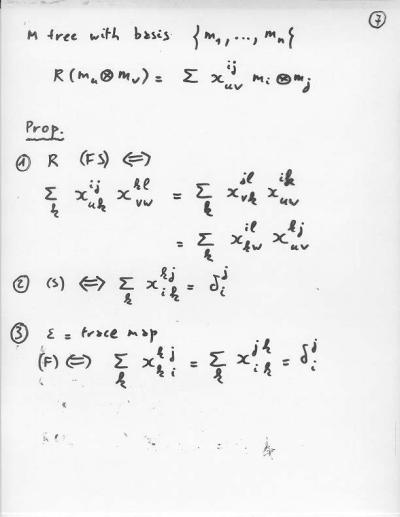 7
M free with basis {m_1, ..., m_n}
R(m_u⊗m_v) = Σ x_{uv}^{ij} m_i⊗m_j
Prop.
① R (FS) ⟺
Σ_k x_{uk}^{ij} x_{vw}^{kl} = Σ_k x_{vk}^{jl} x_{uv}^{ik}
= Σ_k x_{kw}^{il} x_{uv}^{kj}
② (S) ⟺ Σ_k x_{ik}^{kj} = δ_i^j
③ ε = trace map
(F) ⟺ Σ_k x_{ki}^{kj} = Σ_k x_{ik}^{jk} = δ_i^j